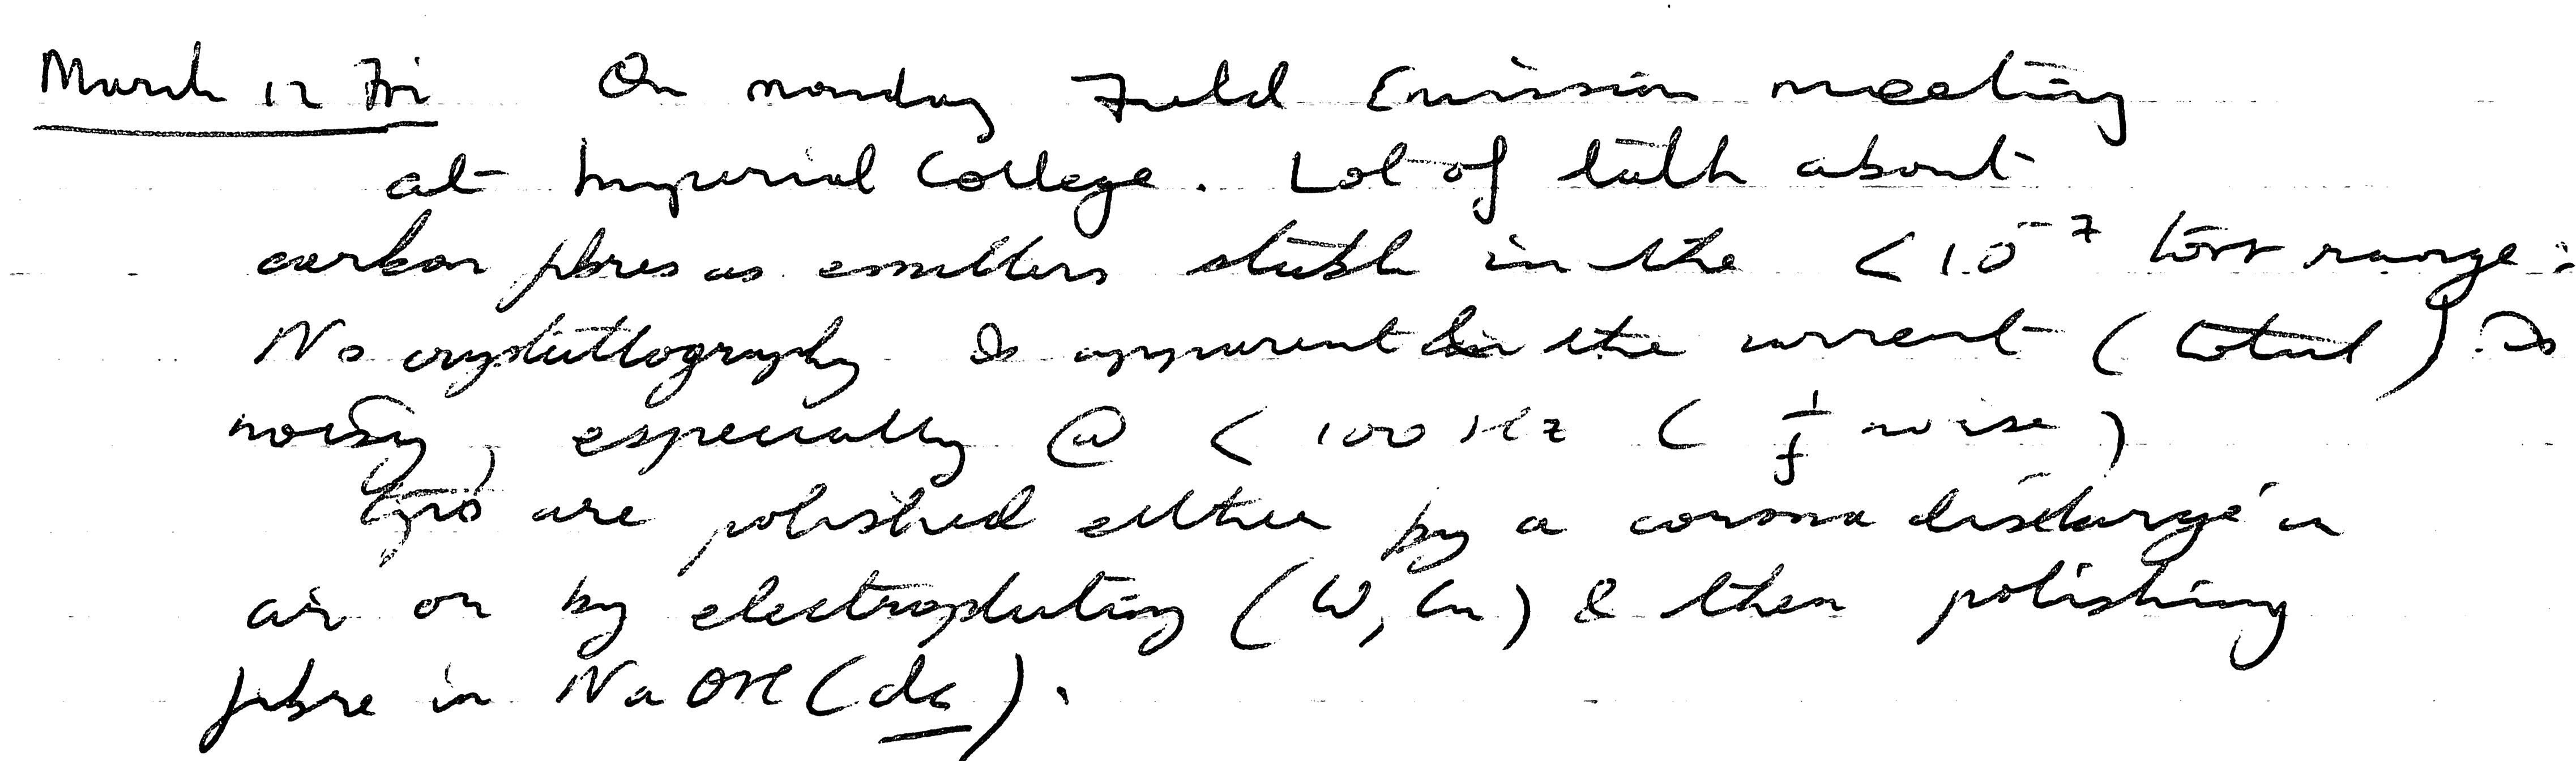 March 12 Fri On monday Field Emission meeting
at Imperial College. Lot of talk about
carbon fibres as emitters stable in the < 10⁻⁷ torr range:
No crystallography is apparent in the current (total). Is
noisy, especially @ < 100 Hz ( 1/f noise )
Tips are polished either by a corona discharge in
air or by electroplating (W, Cu) & then polishing
fibre in NaOH (dc).